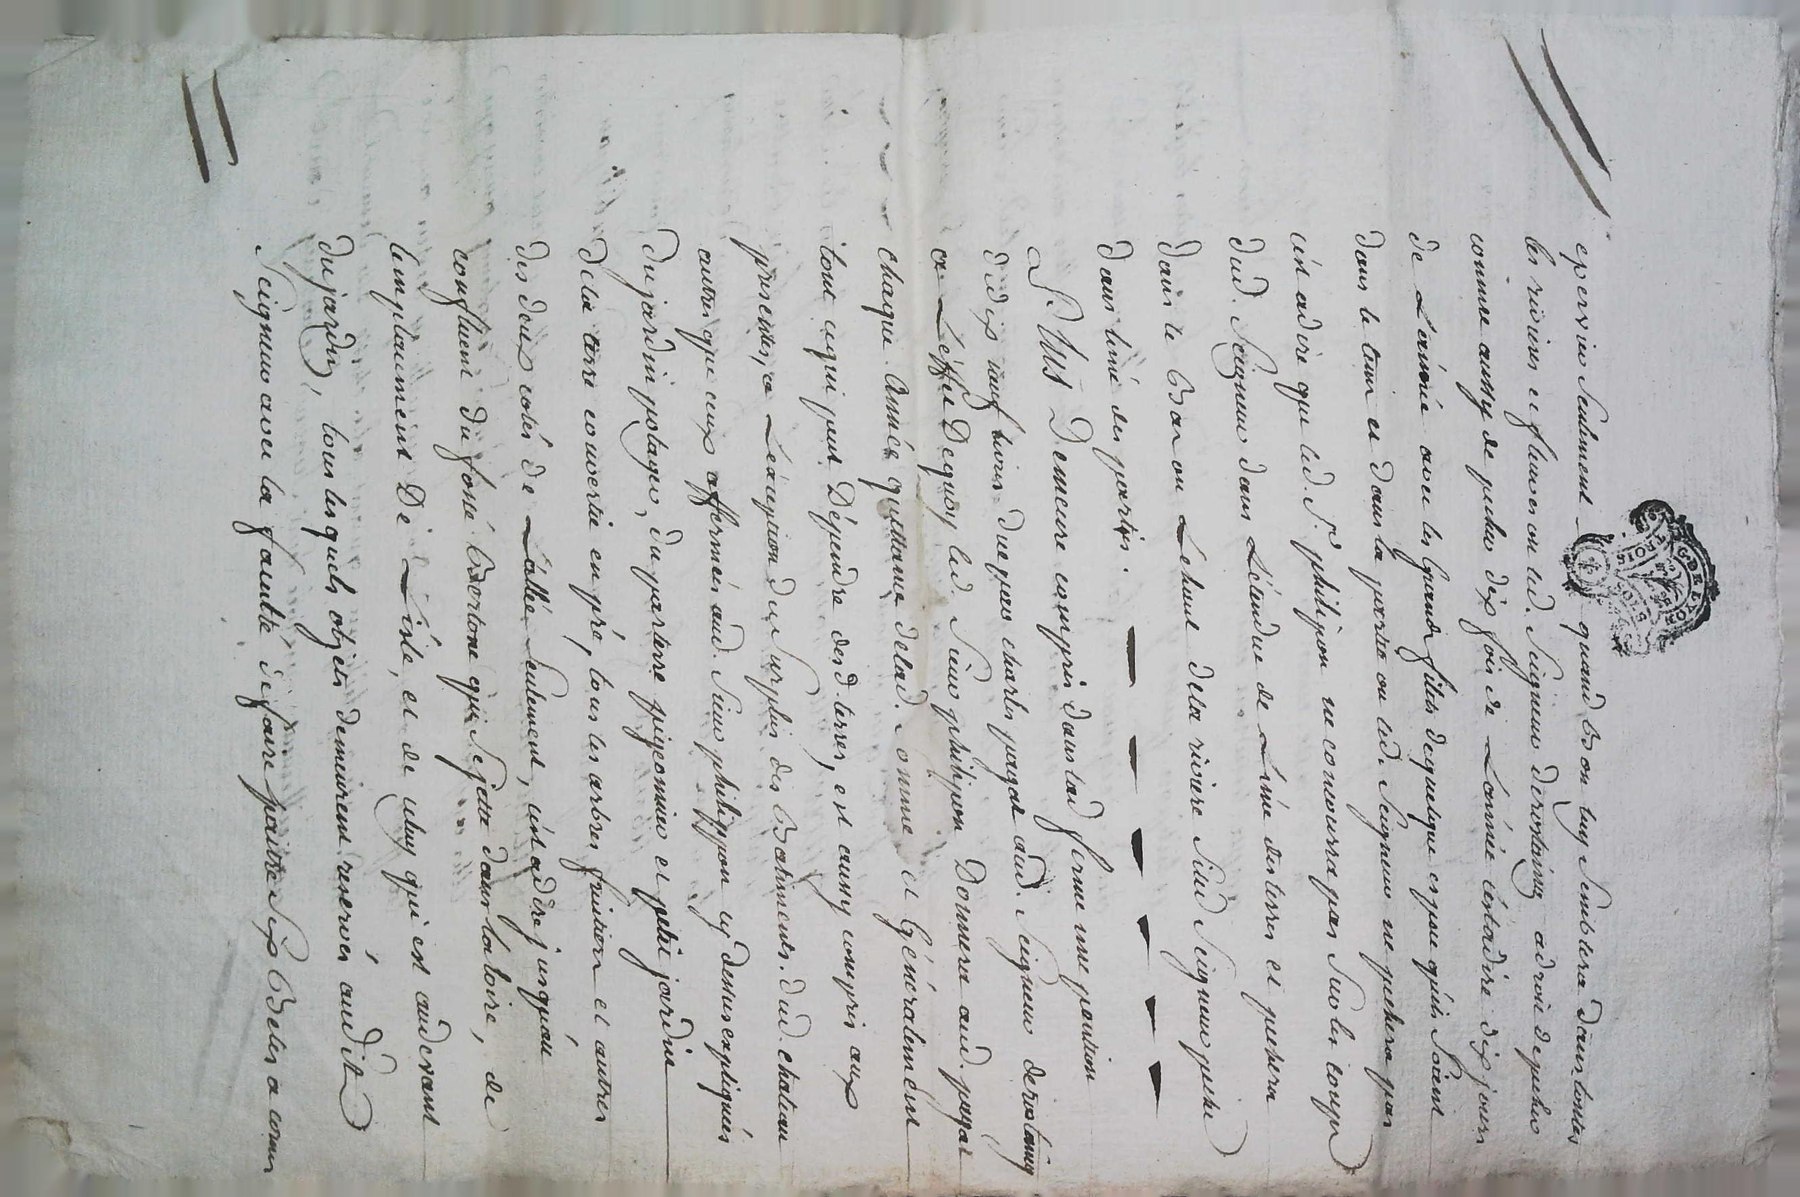 epervier seulement quand bon luy semblera dans touttes
les rivieres et fleuves ou led. Seigneur derostaing a droit de pecher
comme aussy de pecher dix fois de Lannée cestadire dix jours
de Lannée avec les grands filets de quelque espece qu'ils soient
dans le tour et dans la partie ou led. Seigneur ne pechera pas
cest adire que led. Sr. philipon ne concourra pas sur les coups
dud. Seigneur dans L'étendue de Lime des terres et pechera
dans le Bas ou Lehaut dela riviere Siled Seigneur peche
dans lune des parties.
Plus Demeure compris dans lad ferme une pention
de dix neuf livres due par charles payat aud. Seigneur derostaing
a L'effet Dequoy led. Sieur philipon Donnera aud. payat
chaque Année quittance delad. Somme et Généralement
tout cequi peut Dépendre desd. terres, est aussy compris aux
presentes, a Lexception du surplus des Batiments dud. chateau
autres que ceux affermés aud. Sieur philippon cy dessus expliqués
du jardin potager, du parterre pigeonnier et petit jardin
dela terre convertie en pré, tous les arbres fruitiers et autres
des deux cotés de Lallée seulement, cest adire jusquau
confluent du fossé qui se jette dans la loire, de
lemplacement De L'isle, et de celuy qui est audevant
du jardin, tous lesquels objets demeurent reservés audit
Seigneur avec la faculté de faire paitre six Betes a cornes